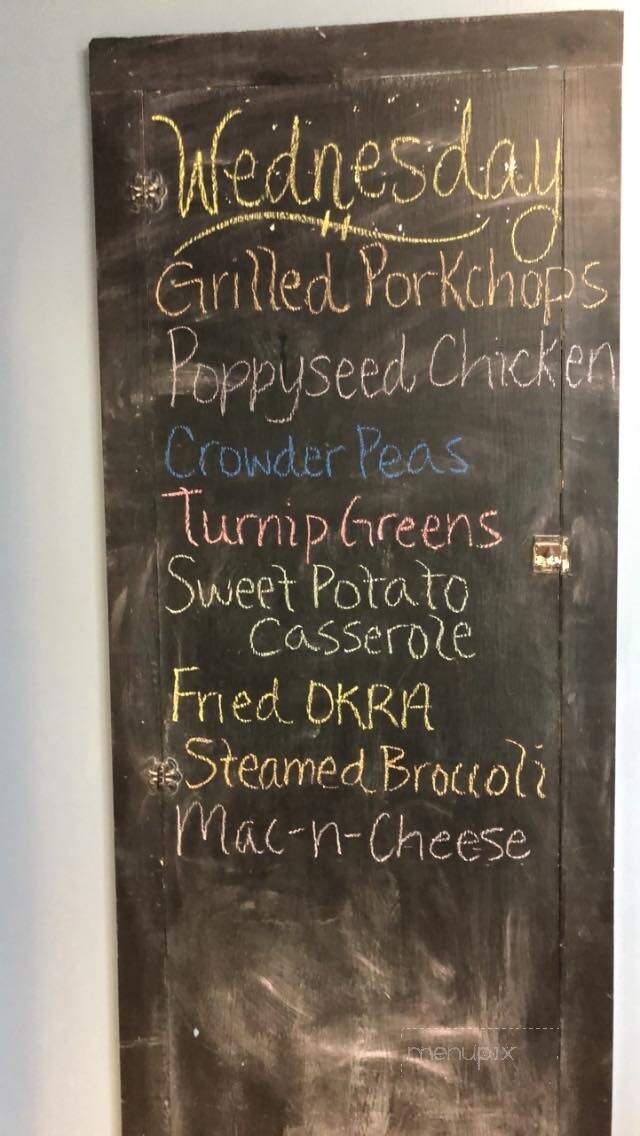 Wednesday
Grilled Porkchops
Poppyseed Chicken
Crowder Peas
Turnip Greens
Sweet Potato
Casserole
Fried OKRA
Steamed Broccoli
Mac-n-Cheese
menupix